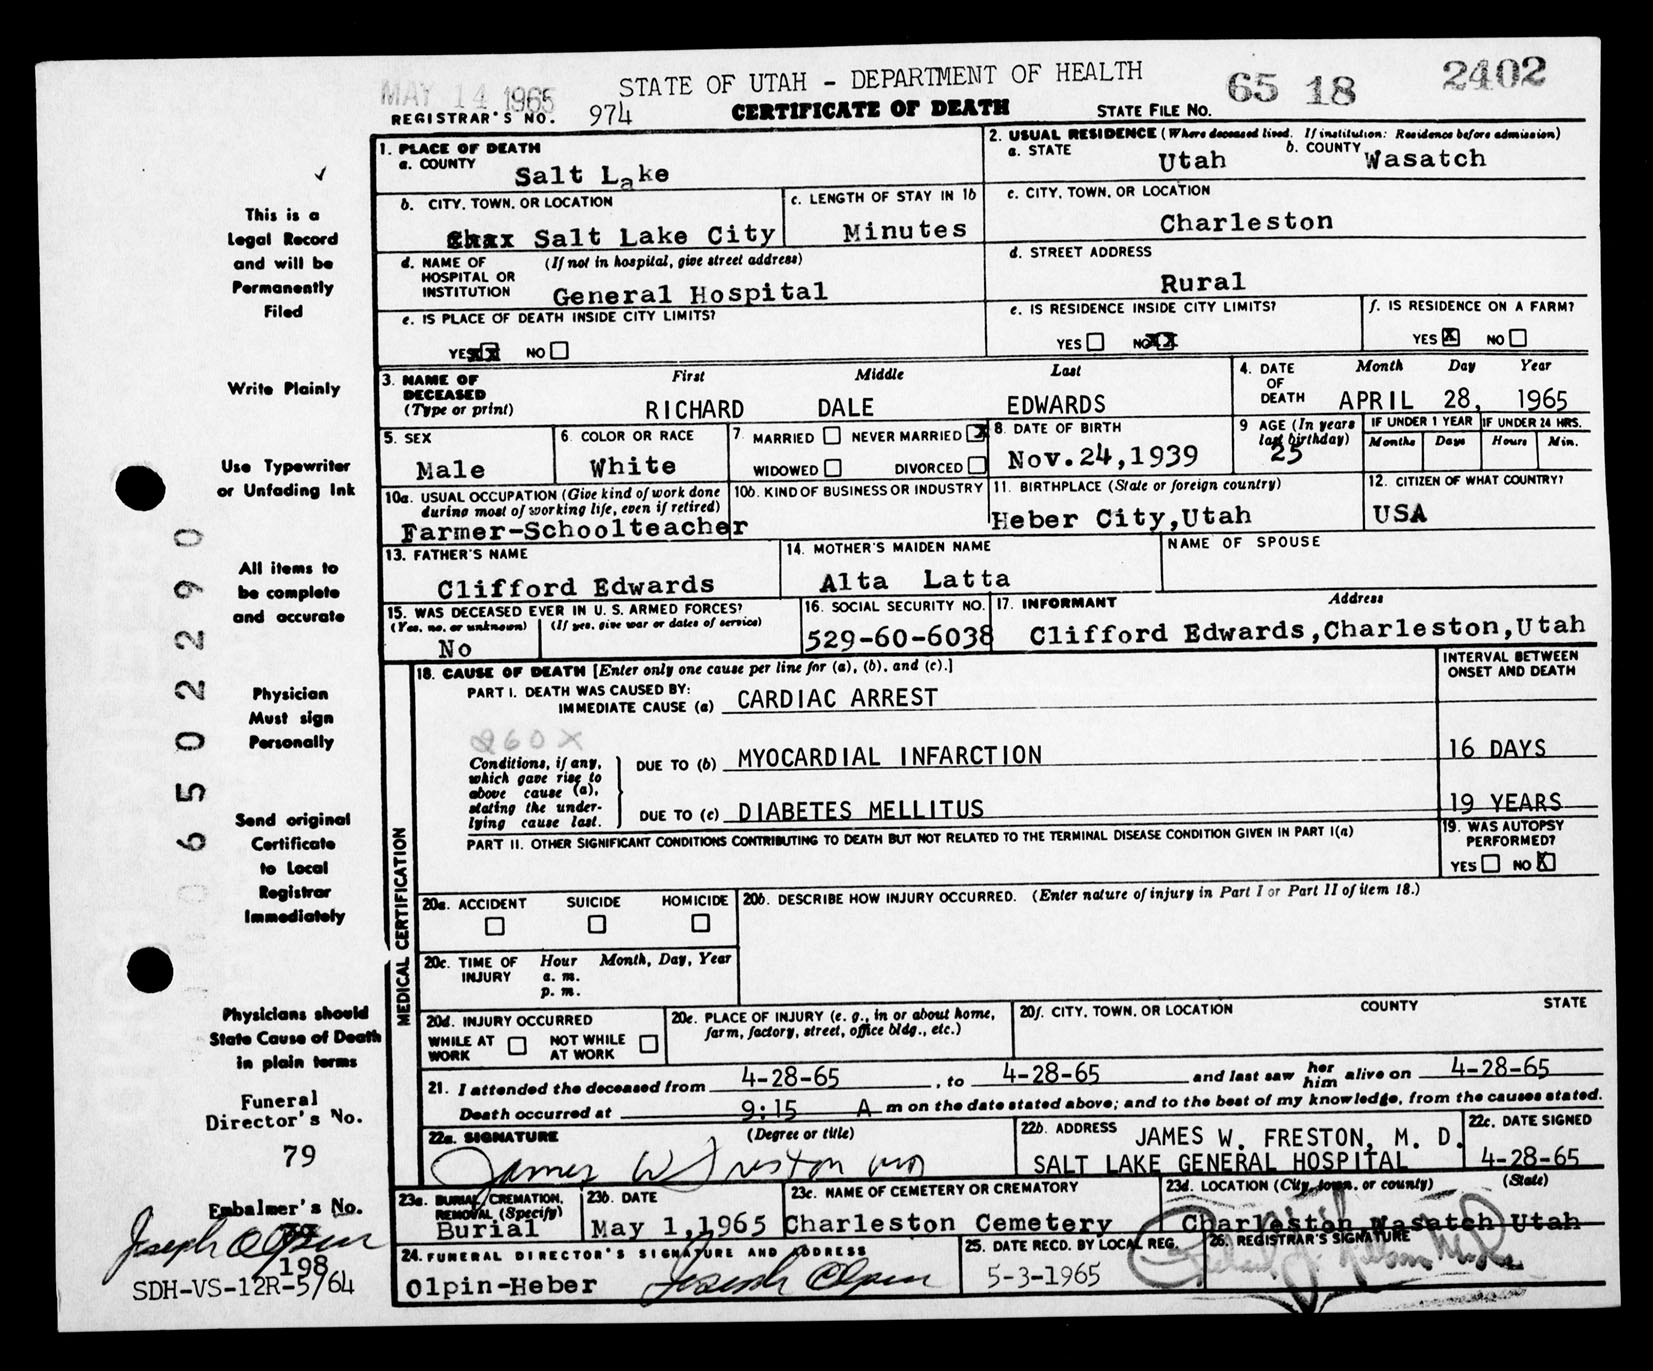 MAY 14 1965
STATE OF UTAH - DEPARTMENT OF HEALTH
65 18 2402
REGISTRAR'S NO. 974 CERTIFICATE OF DEATH STATE FILE NO.
1. PLACE OF DEATH
a. COUNTY
Salt Lake
2. USUAL RESIDENCE (Where deceased lived. If institution: Residence before admission)
a. STATE Utah b. COUNTY Wasatch
b. CITY, TOWN, OR LOCATION
Salt Lake City
c. LENGTH OF STAY IN 1b
Minutes
c. CITY, TOWN, OR LOCATION
Charleston
d. NAME OF HOSPITAL OR INSTITUTION (If not in hospital, give street address)
General Hospital
d. STREET ADDRESS
Rural
e. IS PLACE OF DEATH INSIDE CITY LIMITS?
YES XX NO
e. IS RESIDENCE INSIDE CITY LIMITS?
YES NO XX
f. IS RESIDENCE ON A FARM?
YES X NO
3. NAME OF DECEASED (Type or print)
First Middle Last
RICHARD DALE EDWARDS
4. DATE OF DEATH Month Day Year
APRIL 28, 1965
5. SEX
Male
6. COLOR OR RACE
White
7. MARRIED NEVER MARRIED X
WIDOWED DIVORCED
8. DATE OF BIRTH
Nov.24,1939
9 AGE (In years last birthday)
25
IF UNDER 1 YEAR
Months Days
IF UNDER 24 HRS.
Hours Min.
10a. USUAL OCCUPATION (Give kind of work done during most of working life, even if retired)
Farmer-Schoolteacher
10b. KIND OF BUSINESS OR INDUSTRY
11. BIRTHPLACE (State or foreign country)
Heber City,Utah
12. CITIZEN OF WHAT COUNTRY?
USA
13. FATHER'S NAME
Clifford Edwards
14. MOTHER'S MAIDEN NAME
Alta Latta
NAME OF SPOUSE
15. WAS DECEASED EVER IN U. S. ARMED FORCES?
(Yes, no, or unknown) (If yes, give war or dates of service)
No
16. SOCIAL SECURITY NO.
529-60-6038
17. INFORMANT Address
Clifford Edwards,Charleston,Utah
18. CAUSE OF DEATH [Enter only one cause per line for (a), (b), and (c).]
INTERVAL BETWEEN ONSET AND DEATH
PART I. DEATH WAS CAUSED BY:
IMMEDIATE CAUSE (a) CARDIAC ARREST
260X
Conditions, if any, which gave rise to above cause (a), stating the underlying cause last.
DUE TO (b) MYOCARDIAL INFARCTION 16 DAYS
DUE TO (c) DIABETES MELLITUS 19 YEARS
PART II. OTHER SIGNIFICANT CONDITIONS CONTRIBUTING TO DEATH BUT NOT RELATED TO THE TERMINAL DISEASE CONDITION GIVEN IN PART I(a)
19. WAS AUTOPSY PERFORMED?
YES NO X
MEDICAL CERTIFICATION
20a. ACCIDENT SUICIDE HOMICIDE
20b. DESCRIBE HOW INJURY OCCURRED. (Enter nature of injury in Part I or Part II of item 18.)
20c. TIME OF INJURY Hour Month, Day, Year
a. m.
p. m.
20d. INJURY OCCURRED
WHILE AT WORK NOT WHILE AT WORK
20e. PLACE OF INJURY (e. g., in or about home, farm, factory, street, office bldg., etc.)
20f. CITY, TOWN, OR LOCATION COUNTY STATE
21. I attended the deceased from 4-28-65, to 4-28-65 and last saw her him alive on 4-28-65
Death occurred at 9:15 A m on the date stated above; and to the best of my knowledge, from the causes stated.
22a. SIGNATURE (Degree or title)
James W Freston MD
22b. ADDRESS JAMES W. FRESTON, M. D.
SALT LAKE GENERAL HOSPITAL
22c. DATE SIGNED
4-28-65
23a. BURIAL, CREMATION, REMOVAL (Specify)
Burial
23b. DATE
May 1,1965
23c. NAME OF CEMETERY OR CREMATORY
Charleston Cemetery
23d. LOCATION (City, town, or county) (State)
Charleston,Wasatch Utah
24. FUNERAL DIRECTOR'S SIGNATURE AND ADDRESS
Olpin-Heber Joseph Olpin
25. DATE RECD. BY LOCAL REG.
5-3-1965
26. REGISTRAR'S SIGNATURE
This is a
Legal Record
and will be
Permanently
Filed
Write Plainly
Use Typewriter
or Unfading Ink
All items to
be complete
and accurate
Physician
Must sign
Personally
Send original
Certificate
to Local
Registrar
Immediately
Physicians should
State Cause of Death
in plain terms
Funeral
Director's No.
79
Embalmer's No.
Joseph O Olpin
198
SDH-VS-12R-5/64
065022290